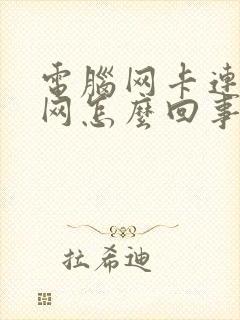 電腦网卡連
网怎麼回事
拉希迪